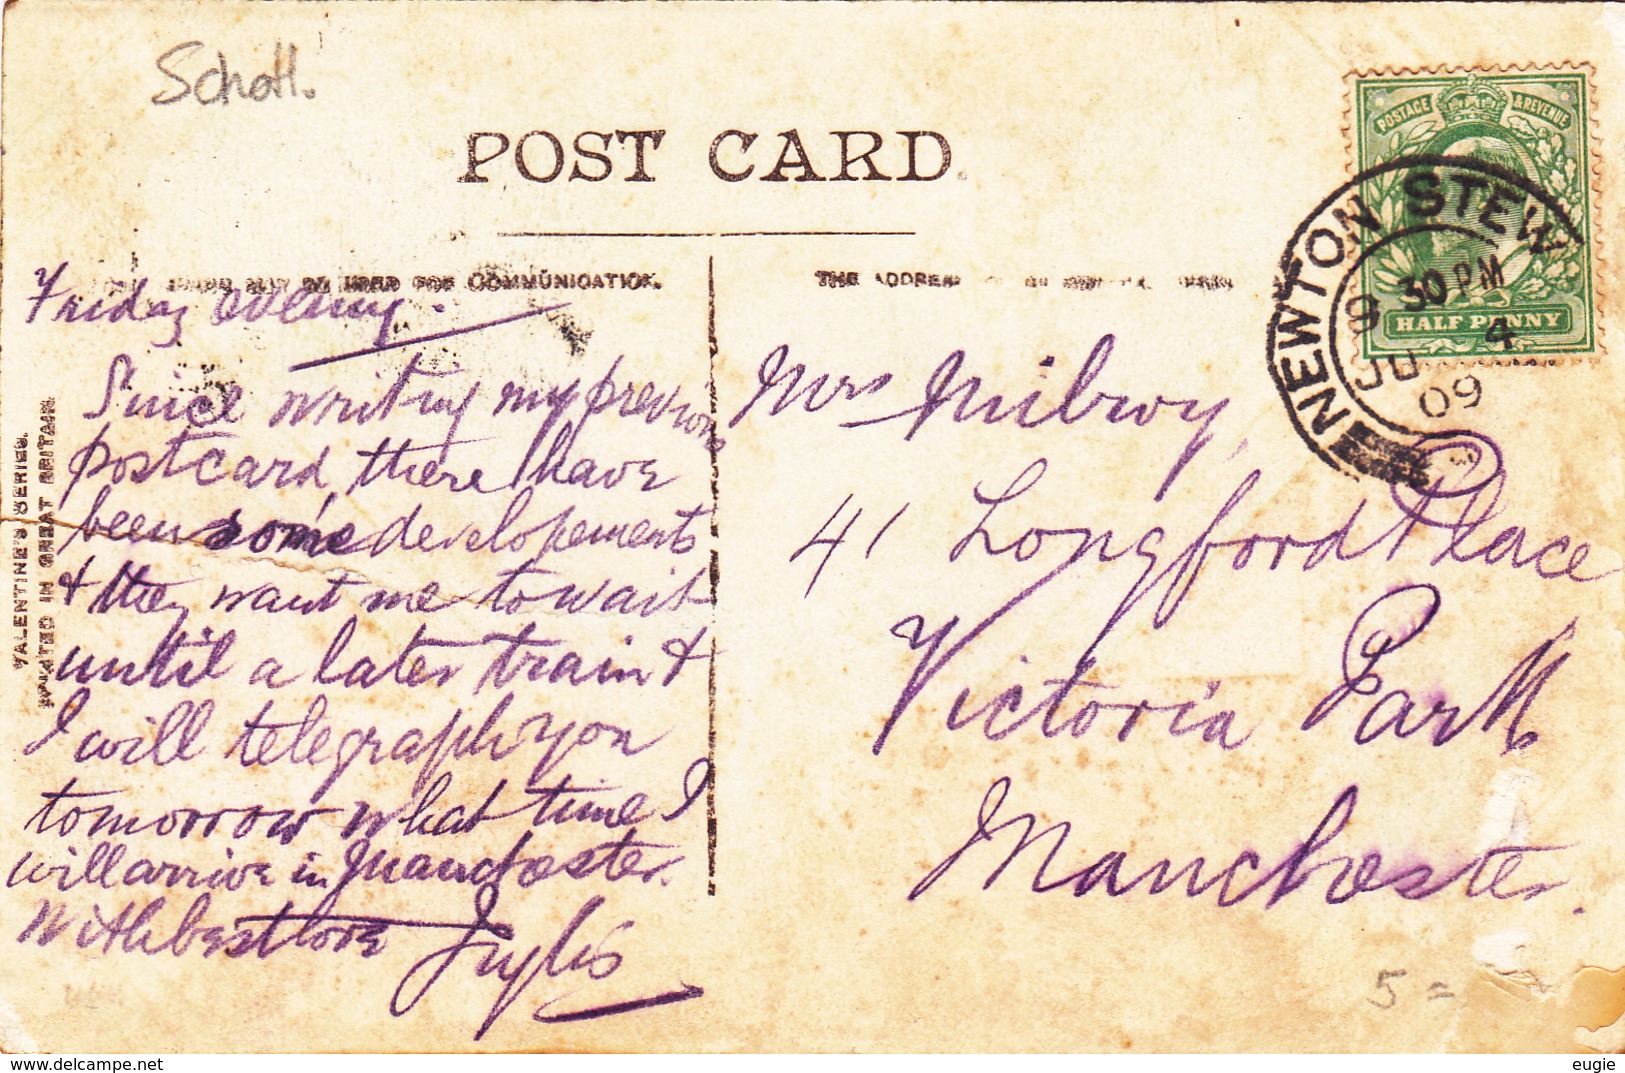 Schotl.
POST CARD
FOR COMMUNICATION.
THE ADDRESS
POSTAGE & REVENUE
HALF PENNY
NEWTON STEW
6 30 PM
JU 4
09
VALENTINE'S SERIES.
PRINTED IN GREAT BRITAIN.
Friday evening.
Since writing my previous
postcard, there have
been some developements
& they want me to wait
until a later train &
I will telegraph you
tomorrow what time I
will arrive in Manchester.
With best love Inglis
Mrs Milroy,
41 Longford Place
Victoria Park
Manchester.
5 =
eugie